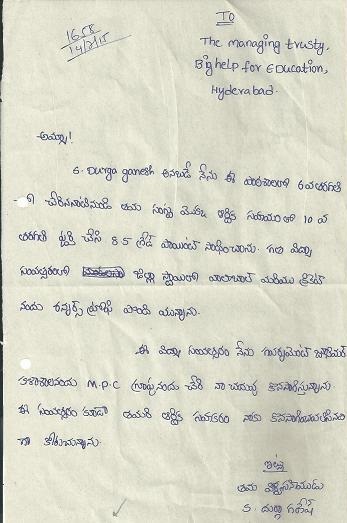 1658
14/7/15
TO
The managing trusty,
Big help for Education,
Hyderabad.
అమ్మా!
S. Durga ganesh అనబడే నేను ఈ పాఠశాలలో 6 వ తరగతి
లో చేరిననాటినుండి తమ సంస్థ ఆర్థిక సహాయం తో 10 వ
తరగతి పూర్తి చేసి 8.5 గ్రేడ్ పాయింట్ సాధించాను. గత విద్యా
సంవత్సరంలో జిల్లా స్థాయిలో వాలీబాల్ మరియు క్రికెట్
నందు రన్నర్స్ ట్రోఫీ పొంది యున్నాను.
ఈ విద్యా సంవత్సరం నేను గవర్నమెంట్ జూనియర్
కళాశాలనందు M.P.C గ్రూపు నందు చేరి నా చదువు కొనసాగిస్తున్నాను.
ఈ సంవత్సరం కూడా తమరి ఆర్థిక సహకారం నాకు
గా కోరుచున్నాను.
ఇట్లు
తమ
S. దుర్గా గణేష్